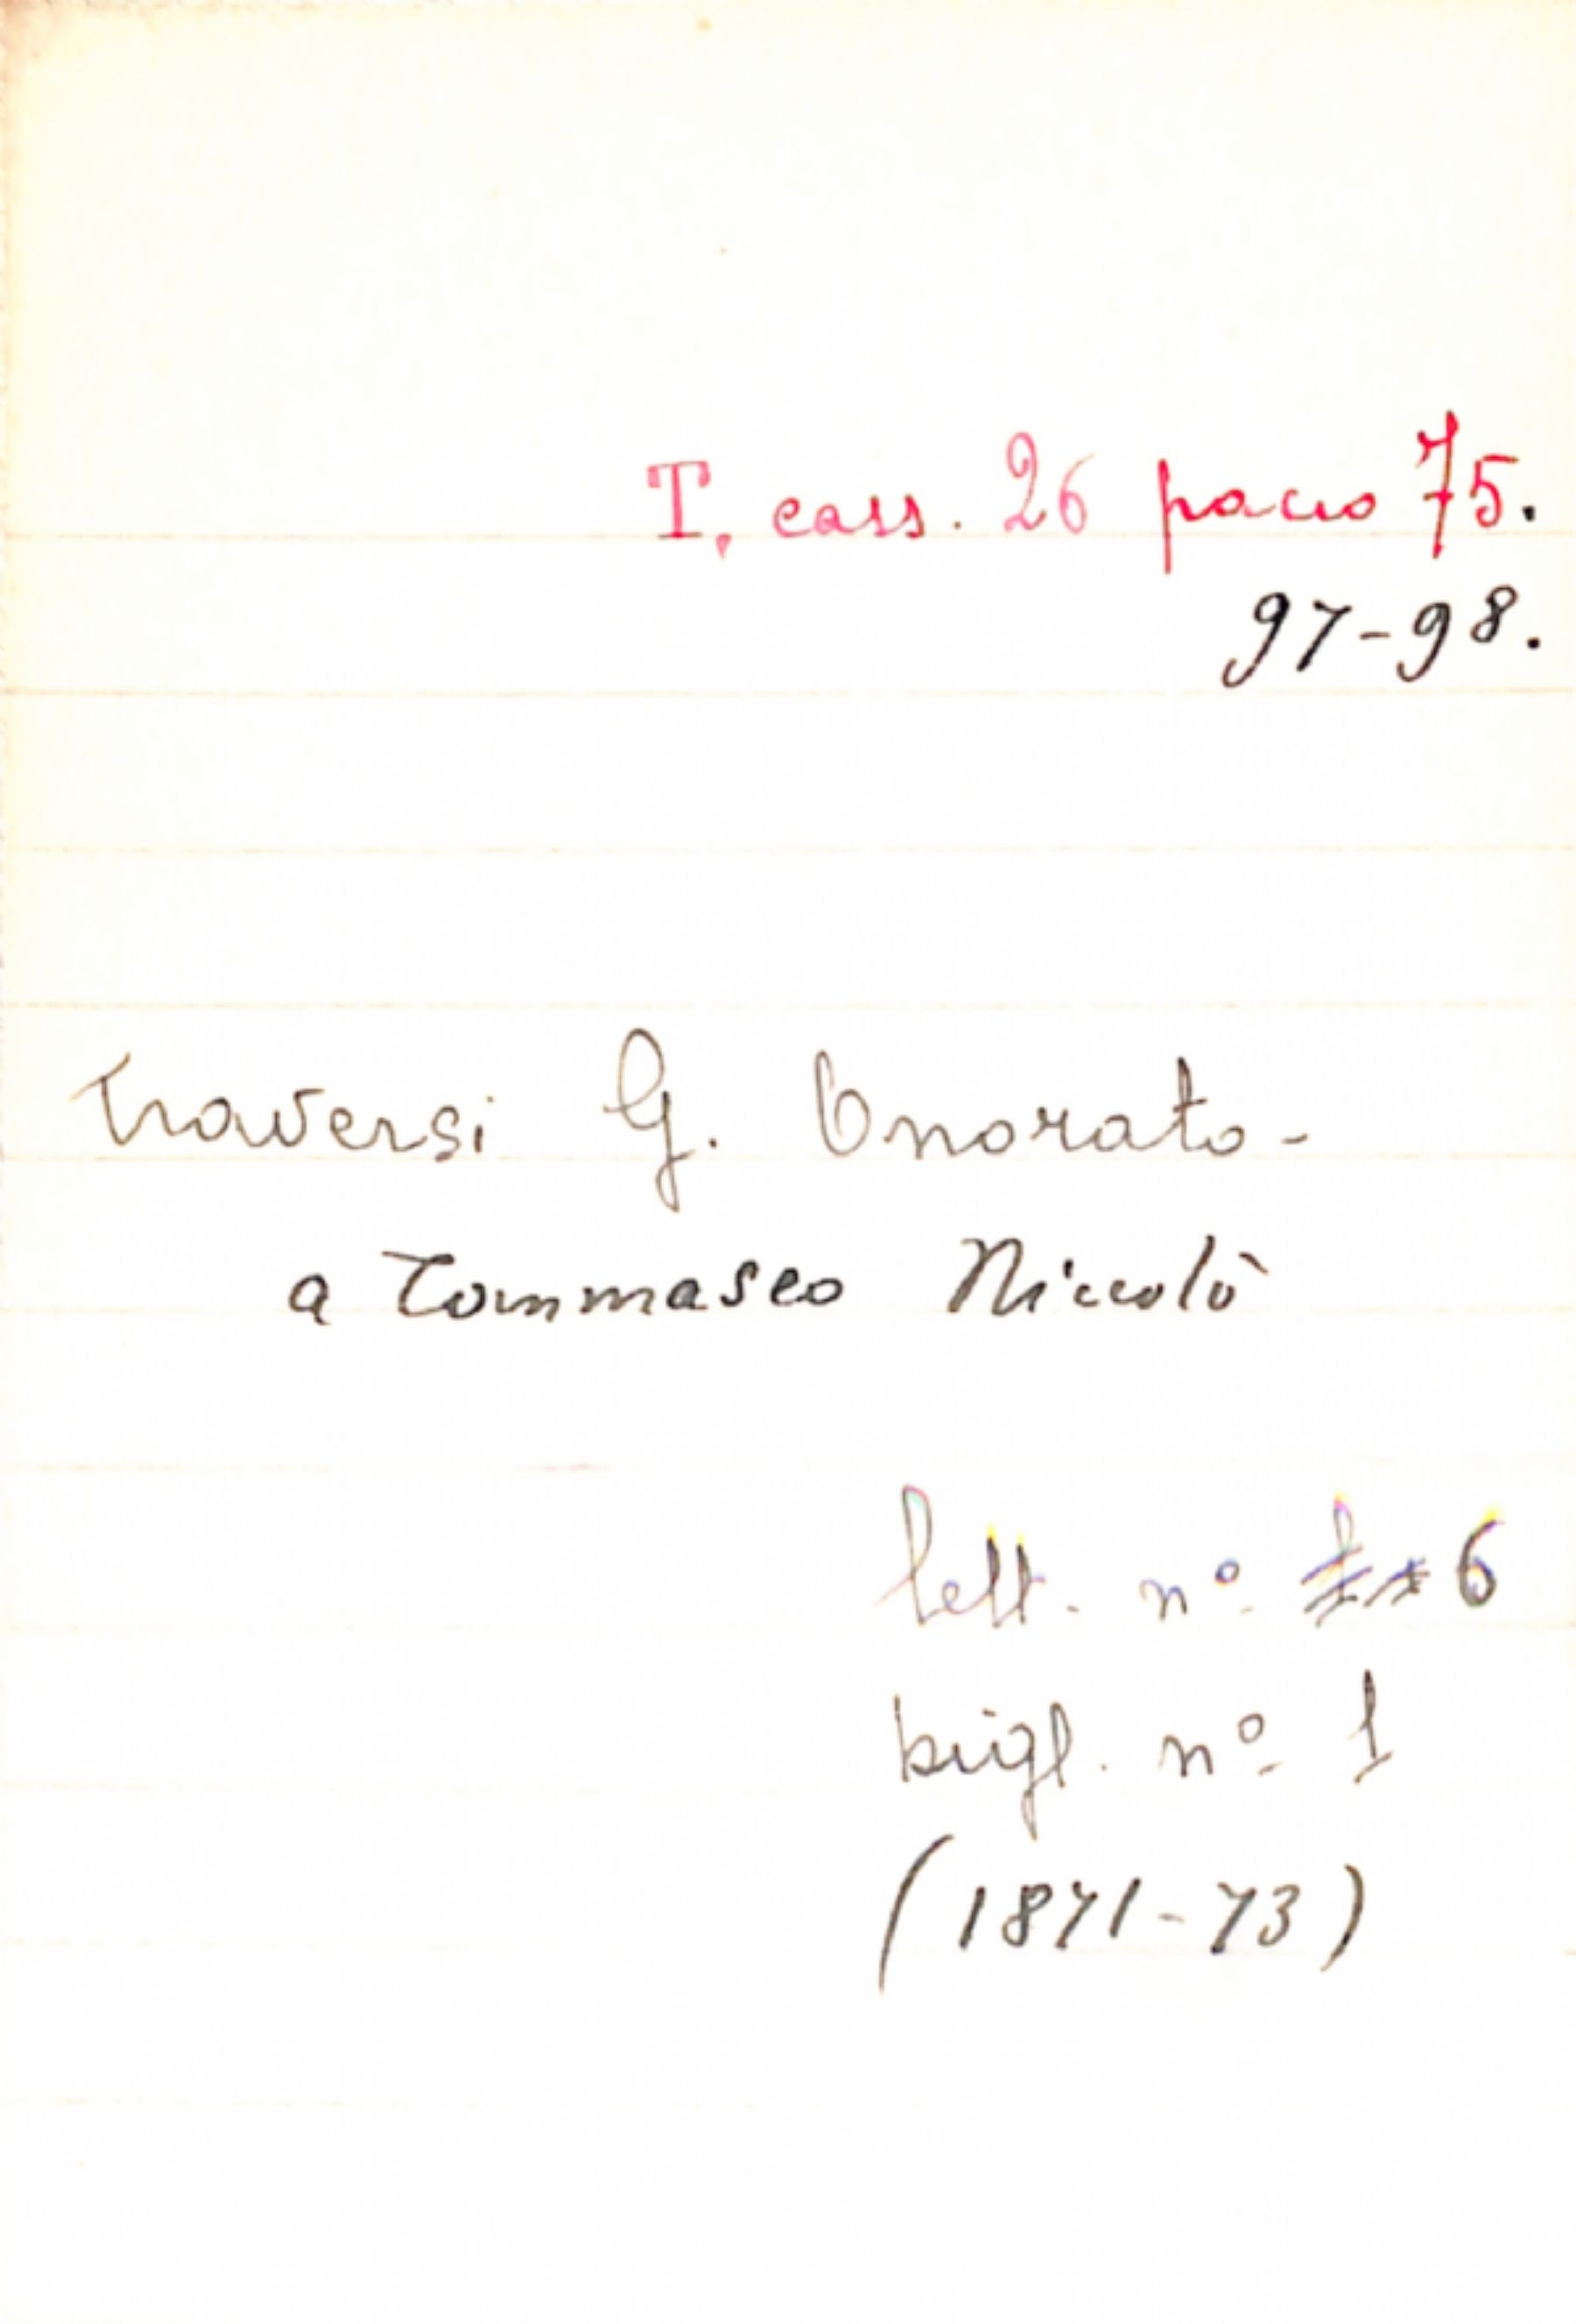 T. cass. 26 pacco 75.
97-98.
Traversi G. Onorato-
a Tommaseo Niccolò
lett. nº 6
bigl. nº 1
(1871-73)